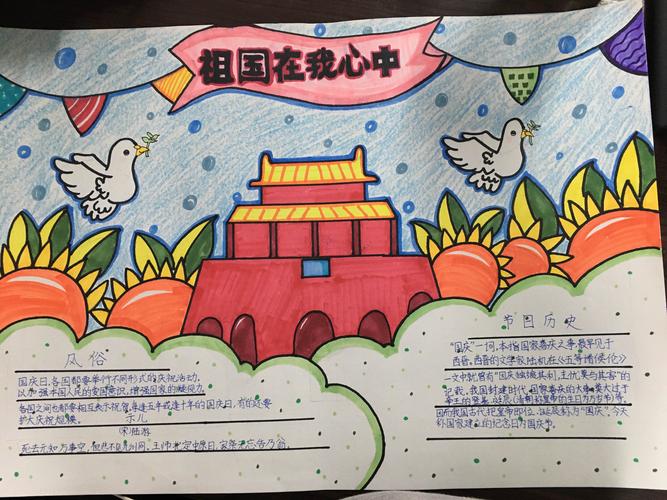 祖国在我心中
风俗
国庆日,各国都要举行不同形式的庆祝活动,
以加强本国人民的爱国意识,增强国家的凝聚力。
各国之间也都要相互表示祝贺,每逢五年或逢十年的国庆日,有的还要
扩大庆祝规模。
示儿
(宋)陆游
死去元知万事空,但悲不见九州同。王师北定中原日,家祭无忘告乃翁。
节日历史
“国庆”一词,本指国家喜庆之事,最早见于
西晋,西晋的文学家陆机在《五等诸侯论》
一文中就曾有“国庆独飨其利,主忧莫与其害”的
记载,我国封建时代,国家喜庆的大事,莫大过于
帝王的登基、诞辰(清朝称皇帝的生日为万岁节)等,
因而我国古代把皇帝即位、诞辰称为“国庆”,今天
称国家建立的纪念日为国庆节。